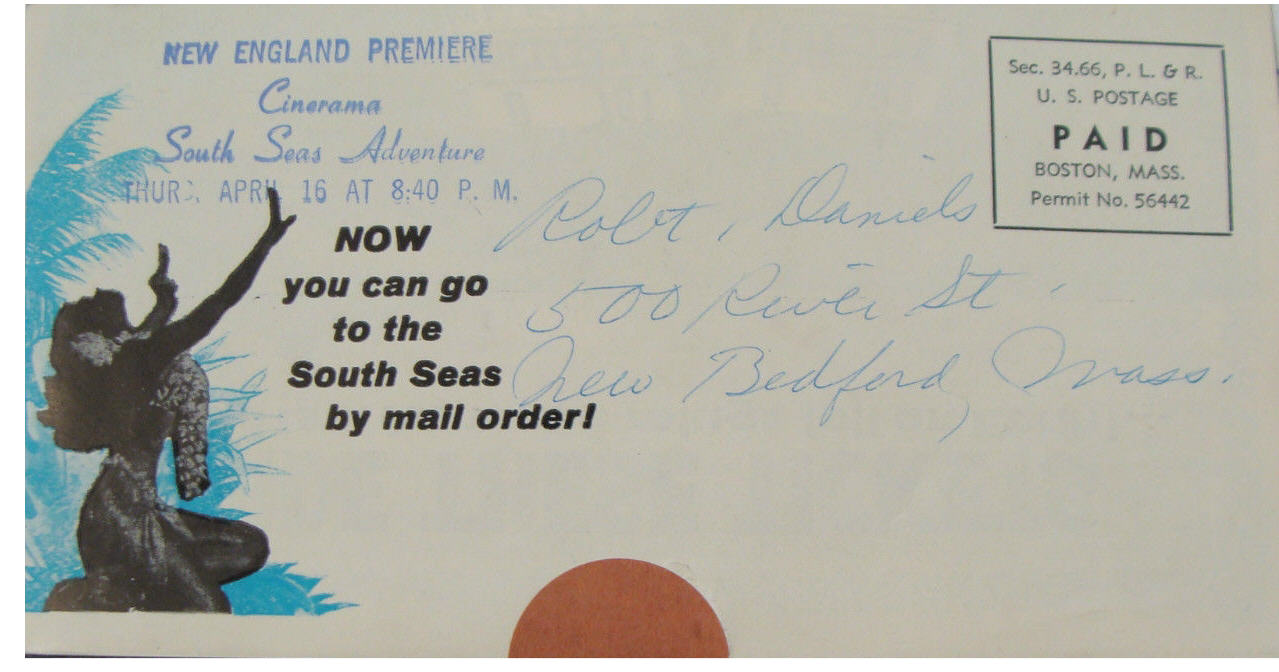 NEW ENGLAND PREMIERE
Cinerama
South Seas Adventure
THURS. APRIL 16 AT 8:40 P. M.
NOW
you can go
to the
South Seas
by mail order!
Sec. 34.66, P. L. & R.
U. S. POSTAGE
PAID
BOSTON, MASS.
Permit No. 56442
Robt, Daniels
500 River St.
New Bedford, Mass.